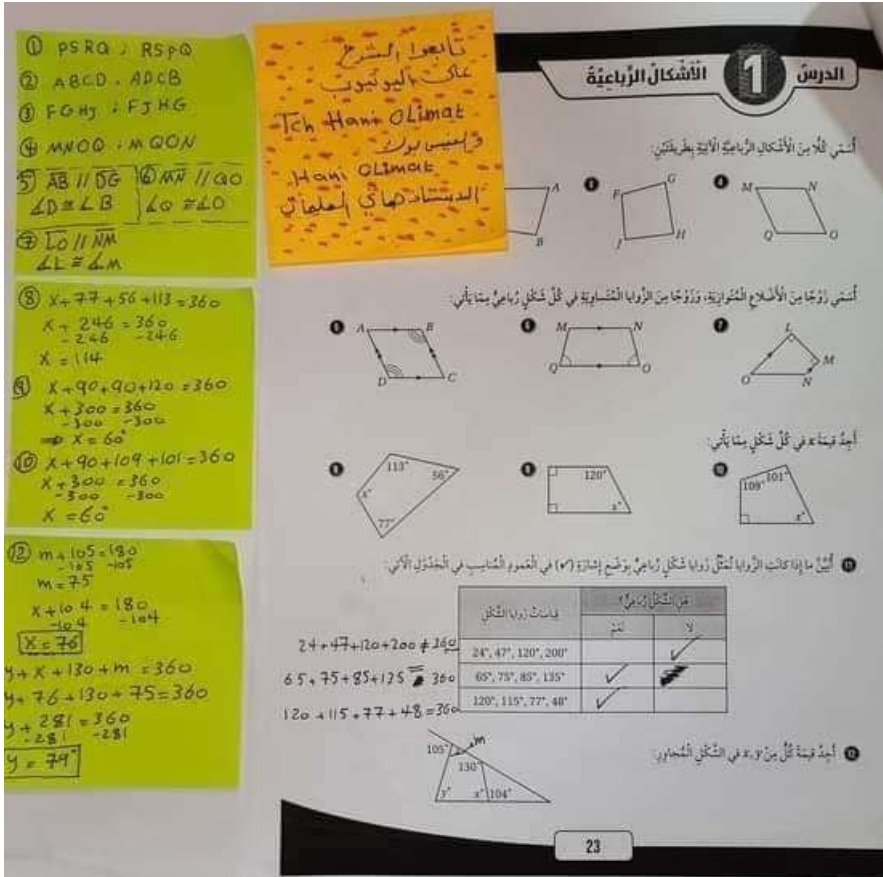 ① PSRQ ; RSPQ
② ABCD . ADCB
③ FGHJ ; FJHG
④ MNOQ . MQON
⑤ AB // DG
∠D ≅ ∠B
⑥ MN // QO
∠Q ≅ ∠O
⑦ LO // NM
∠L ≅ ∠M
⑧ x + 77 + 56 + 113 = 360
x + 246 = 360
- 246 - 246
x = 114
⑨ x + 90 + 90 + 120 = 360
x + 300 = 360
- 300 - 300
⇒ x = 60°
⑩ x + 90 + 109 + 101 = 360
x + 300 = 360
- 300 - 300
x = 60°
⑫ m + 105 = 180
- 105 - 105
m = 75
x + 104 = 180
- 104 - 104
x = 76
y + x + 130 + m = 360
y + 76 + 130 + 75 = 360
y + 281 = 360
- 281 - 281
y = 79°
تابعوا الشرح
على اليوتيوب
Tch Hani OLimat
والفيس بوك
Hani OLimat
الدرسُ 1 الْأَشْكالُ الرُّباعِيَّةُ
أُسَمّي كُلًّا مِنَ الْأَشْكالِ الرُّباعِيَّةِ الْآتِيَةِ بِطَريقَتَيْنِ:
A
B
3 F G H J
4 M N O Q
أُسَمّي زَوْجًا مِنَ الْأَضْلاعِ الْمُتَوازِيَةِ، وَزَوْجًا مِنَ الزَّوايا الْمُتَساوِيَةِ في كُلِّ شَكْلٍ رُباعِيٍّ مِمّا يَأْتي:
5 A B C D
6 M N O Q
7 L M N O
أَجِدُ قيمَةَ x في كُلِّ شَكْلٍ مِمّا يَأْتي:
113° 56° x° 77°
9 120° x°
10 109° 101° x°
11 أُبَيِّنُ ما إذا كانَتِ الزَّوايا تُمَثِّلُ زَوايا شَكْلٍ رُباعِيٍّ بِوَضْعِ إشارَةِ (✓) في الْعَمودِ الْمُناسِبِ في الْجَدْوَلِ الْآتي:
قِياساتُ زَوايا الشَّكْلِ
هَلِ الشَّكْلُ رُباعِيٌّ؟
نَعَمْ لا
24 + 47 + 120 + 200 ≠ 360 24°, 47°, 120°, 200° ✓
65 + 75 + 85 + 135 = 360 65°, 75°, 85°, 135° ✓
120 + 115 + 77 + 48 = 360 120°, 115°, 77°, 48° ✓
12 أَجِدُ قيمَةَ كُلٍّ مِنْ x, y في الشَّكْلِ الْمُجاوِرِ:
105° m
130°
y° x° 104°
23